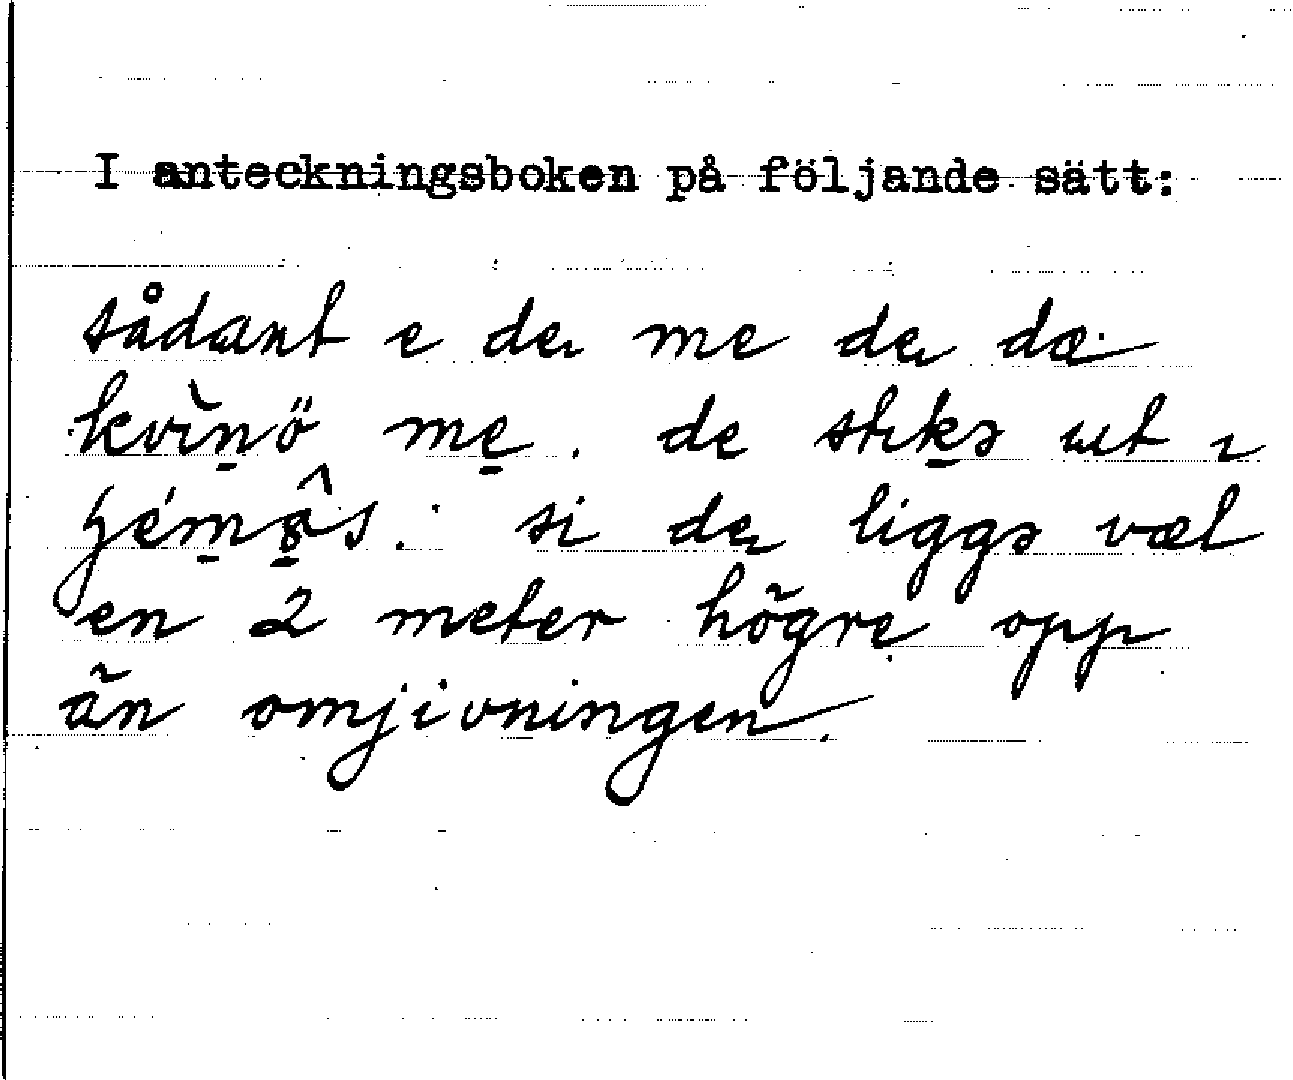 I anteckningsboken på följande sätt:
sådant e de me de dæ
kvìn̲ö me̲. de stık̲s ut ı
si de liggs væl
en 2 meter högre opp
än omjivningen.